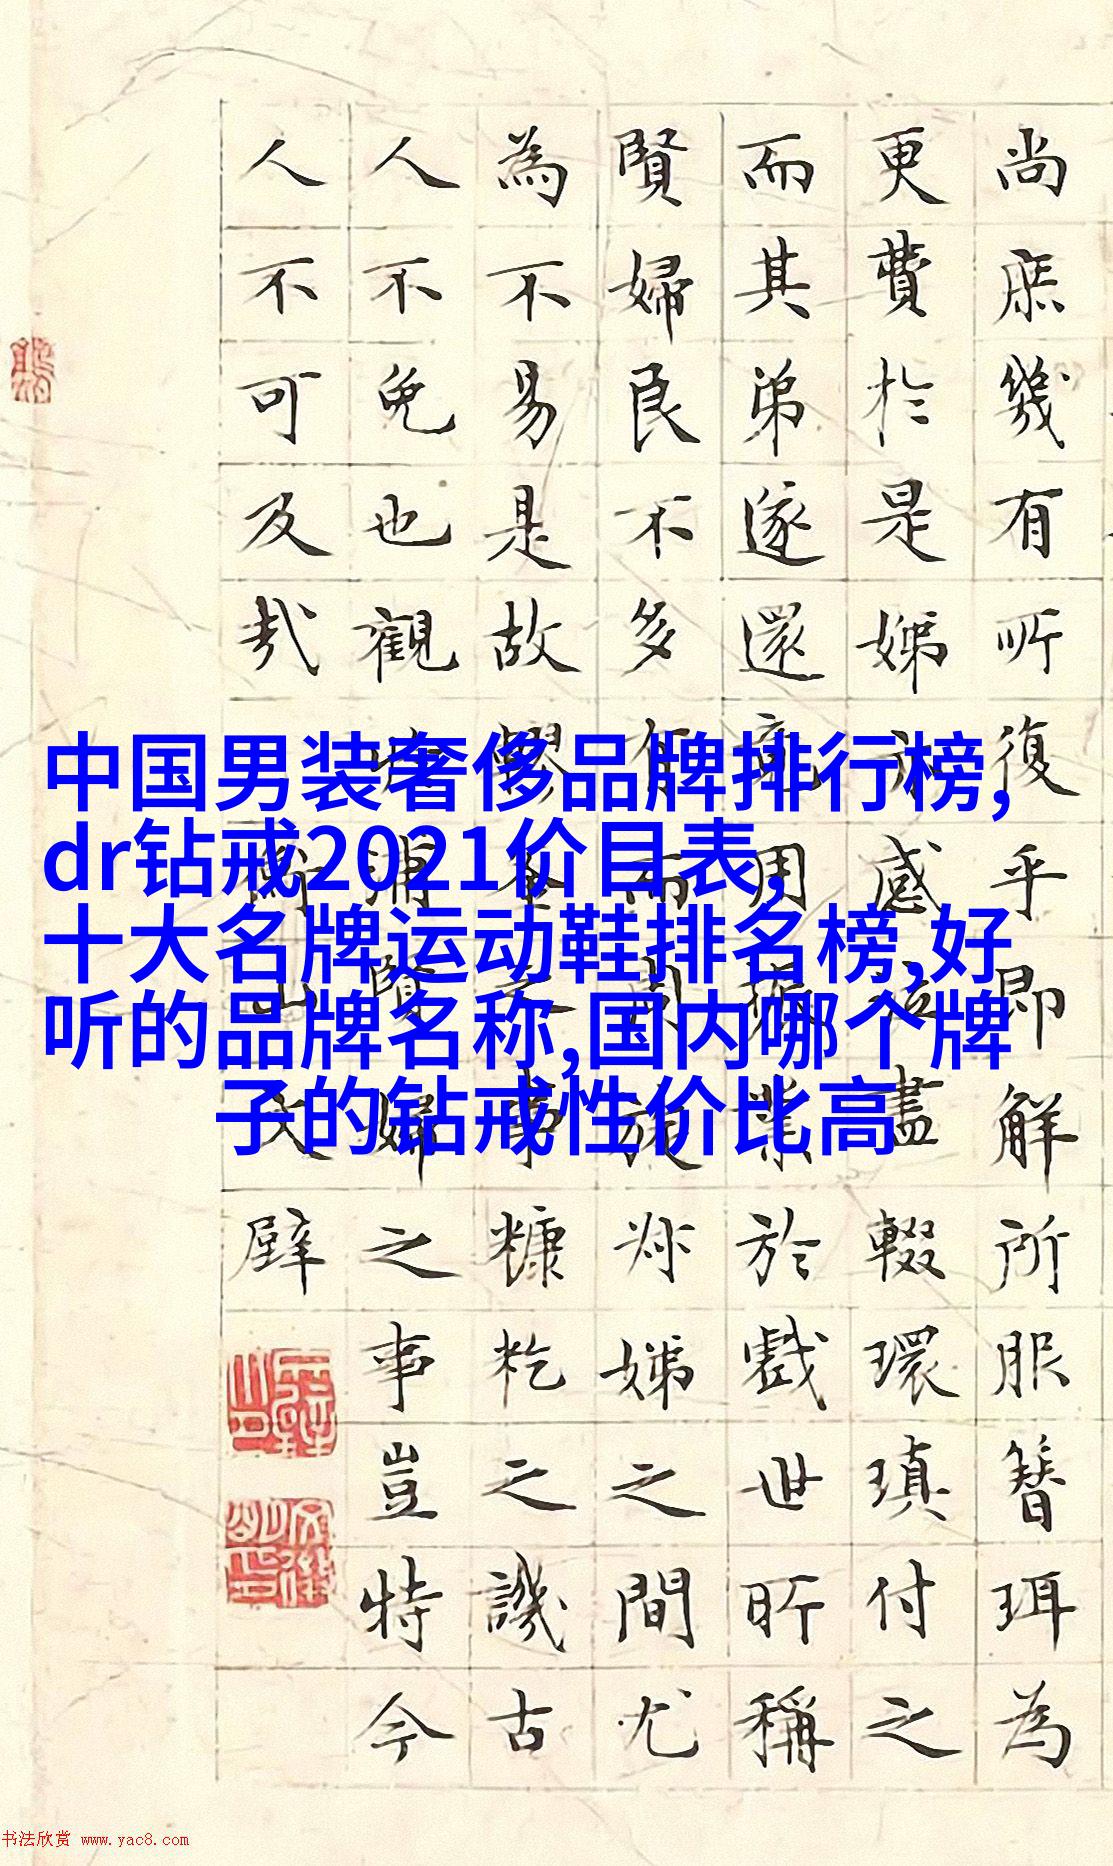 中国男装奢侈品牌排行榜,
dr钻戒2021价目表,
十大名牌运动鞋排名榜,好
听的品牌名称,国内哪个牌
子的钻戒性价比高
尚庶幾有所復乎即解所服簪珥為
更費於是姊亦感盡輟環瑱付之
而其弟遂還用業於戲世所稱
賢婦良不多有而周旋姊之間尤
為不易是故繆事糠籺之譏古
人不免也觀浦賢婦之事豈特今
人不可及哉
衡山文壁
书法欣赏 www.yac8.com